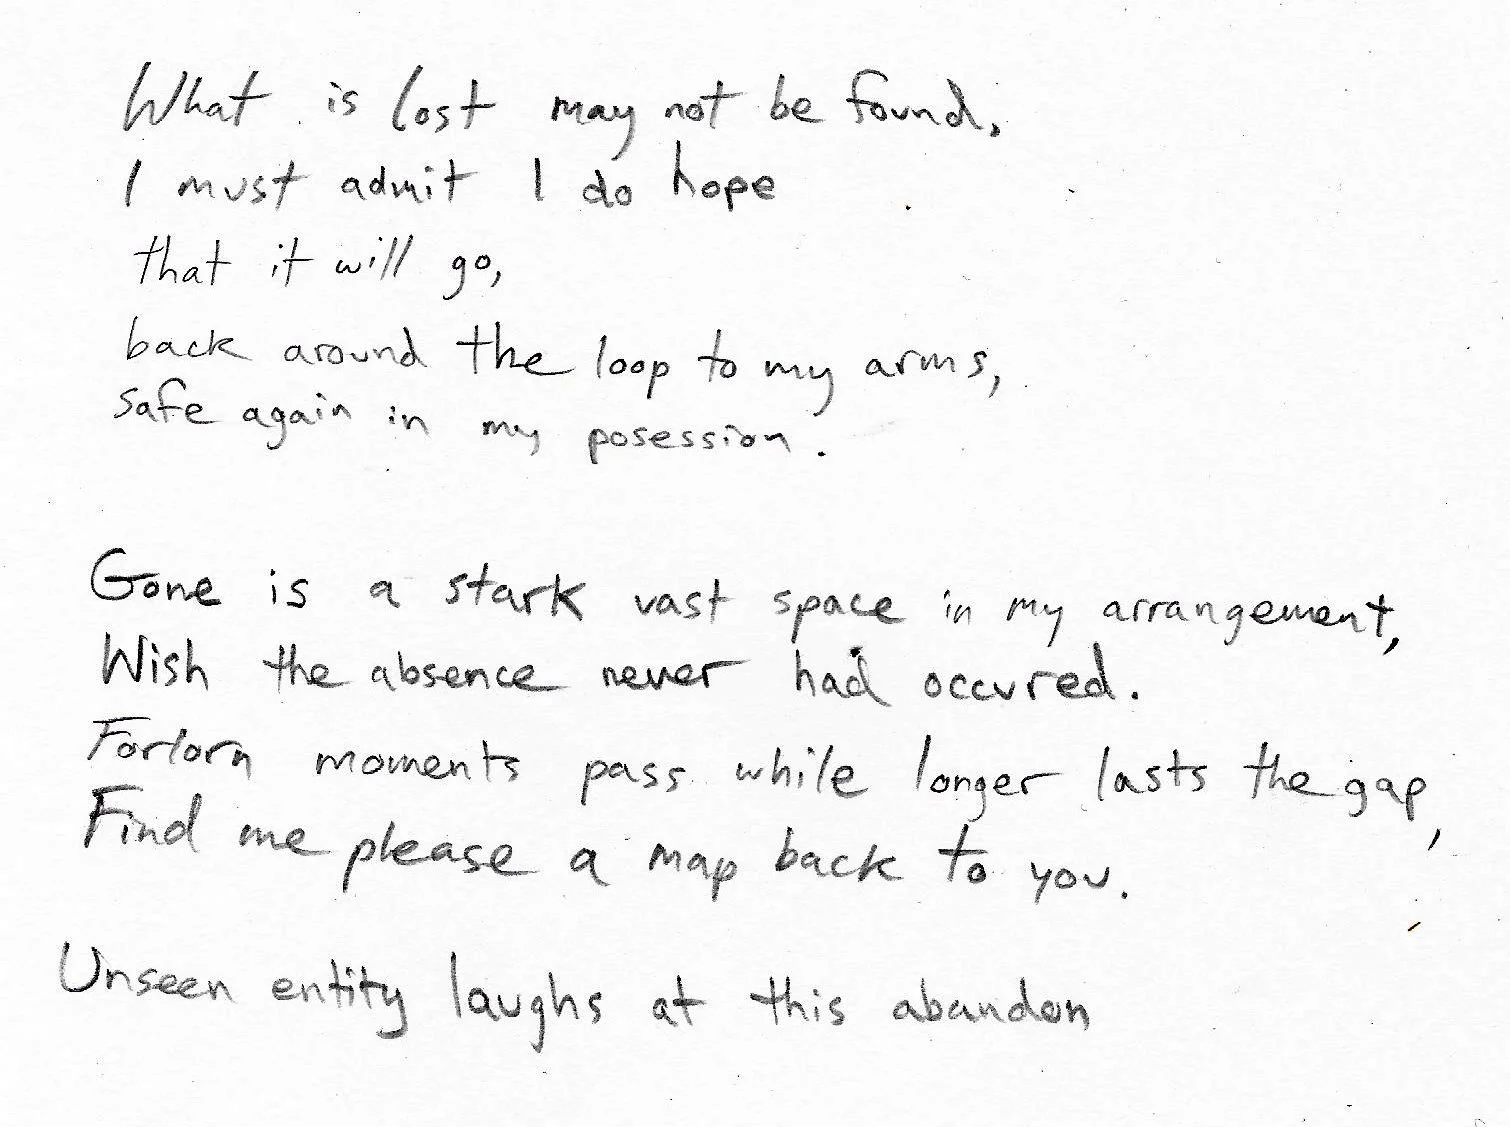 What is lost may not be found,
I must admit I do hope
that it will go,
back around the loop to my arms,
safe again in my posession.
Gone is a stark vast space in my arrangement,
Wish the absence never had occured.
Forlorn moments pass while longer lasts the gap,
Find me please a map back to you.
Unseen entity laughs at this abandon